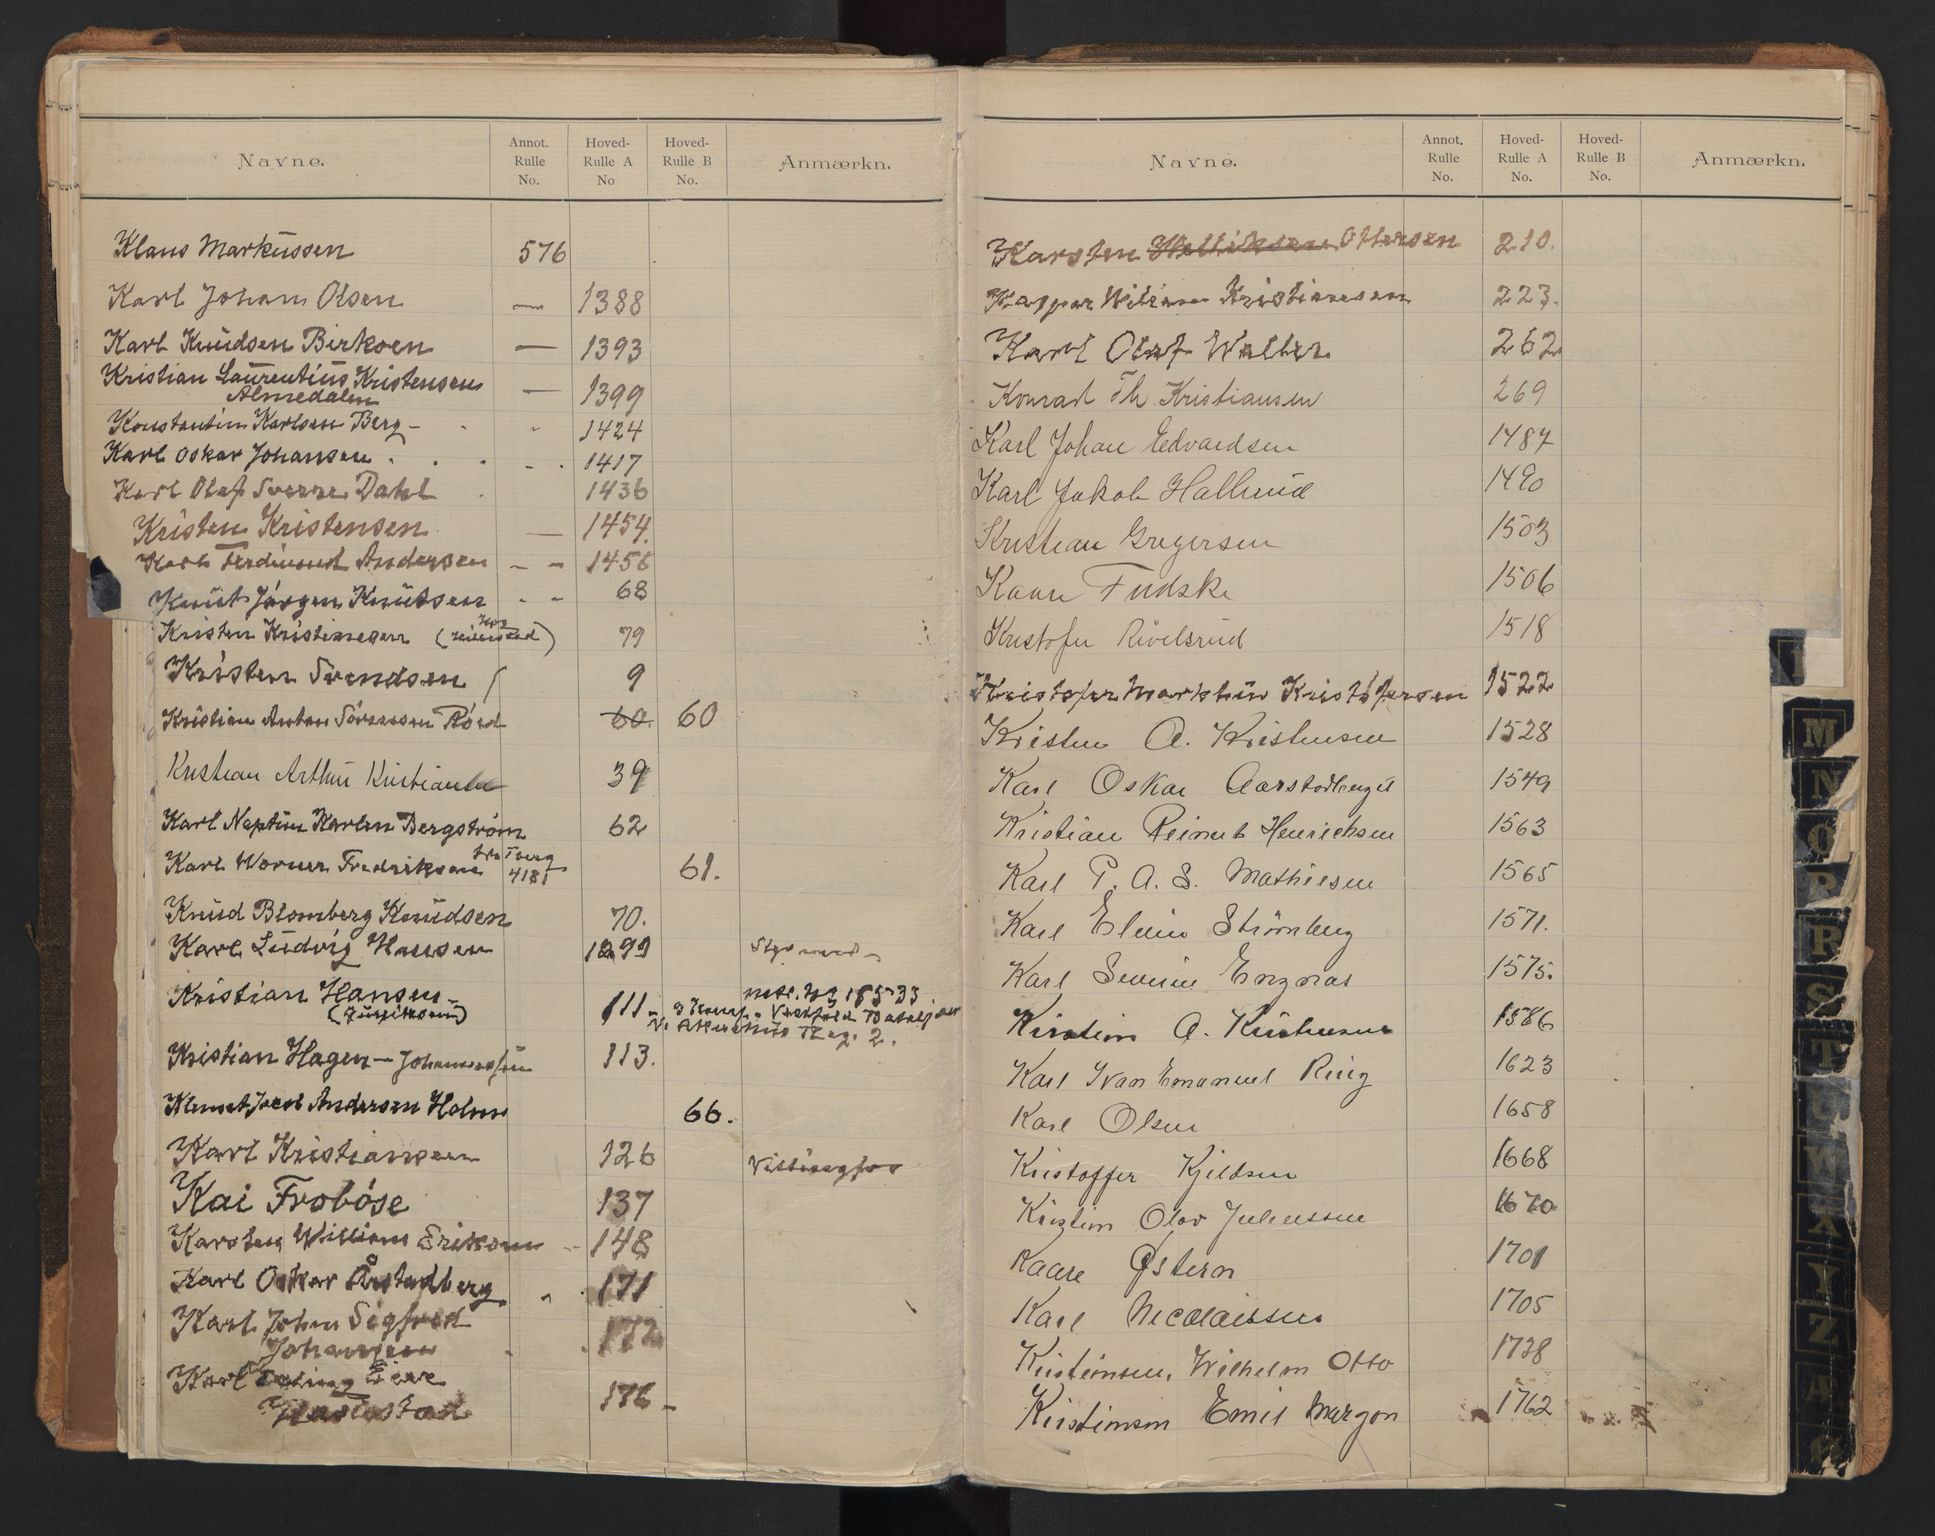 Navne. Annot. Rulle No. Hoved-Rulle A No Hoved-Rulle B No. Anmærkn.
Klaus Markussen 576
Karl Johan Olsen — 1388
Karl Knudsen Birkoen — 1393
Kristian Laurentius Kristensen — 1399
Almedalen
Konstantin Karlsen Berg - 1424
Karl Oskar Johansen 1417
Karl Olaf Sverre Dahl 1436
Kristen Kristensen — 1454.
Karl Ferdinand Andersen - - 1456
Knut Jörgen Knutsen - - 68
Kristen Kristiansen 79
Kristen Svendsen 9
Kristian Anton Sörensen Röed 60. 60
Kristian Arthur Kristiansen 39
Karl Neptun Karlsen Bergström 62
Karl Werner Fredriksen 4181 61.
Knud Blomberg Knudsen 70.
Karl Ludvig Hansen 1299
Kristian Hansen 111
Kristian Hagen — Johannessen 113.
Jacob Andersen Holm 66.
Karl Kristiansen 126
Kai Froböse 137
Karsten William Eriksen 148
Karl Oskar Årstadberg 171
Karl John Sigfred 172
Johansen
Karl 176 -
Navne. Annot. Rulle No. Hoved-Rulle A No. Hoved-Rulle B No. Anmærkn.
Karsten Ottersen 210.
Kaspar Kristiansen 223.
Karl Olaf Walter 262
Konrad Th. Kristiansen 269
Karl Johan Edvardsen 1487
Karl Jakob Hallrud 1490
Kristian Gregersen 1503
Kaare Fudske 1506
Kristofer Rivelsrud 1518
Kristofer Kristofersen 1522
Kristen A. Kristensen 1528
Karl Oskar Aarstadberget 1549
Kristian Reinert Henrichsen 1563
Karl P. A. S. Mathiesen 1565
Karl Strömberg 1571.
Karl Severin Engnas 1575.
Kristian A. Kristiansen 1586
Karl Ivan Emanuel Ring 1623
Karl Olsen 1658
Kristoffer Kjeldsen 1668
Kristian Olav Juliussen 1670
Kaare Østern 1701
Karl Nicolaissen 1705
Kristiansen, Wilhelm Otto 1738
Kristiansen Emil Margon 1762
M
N
O
P
R
S
T
U
W
X
Z